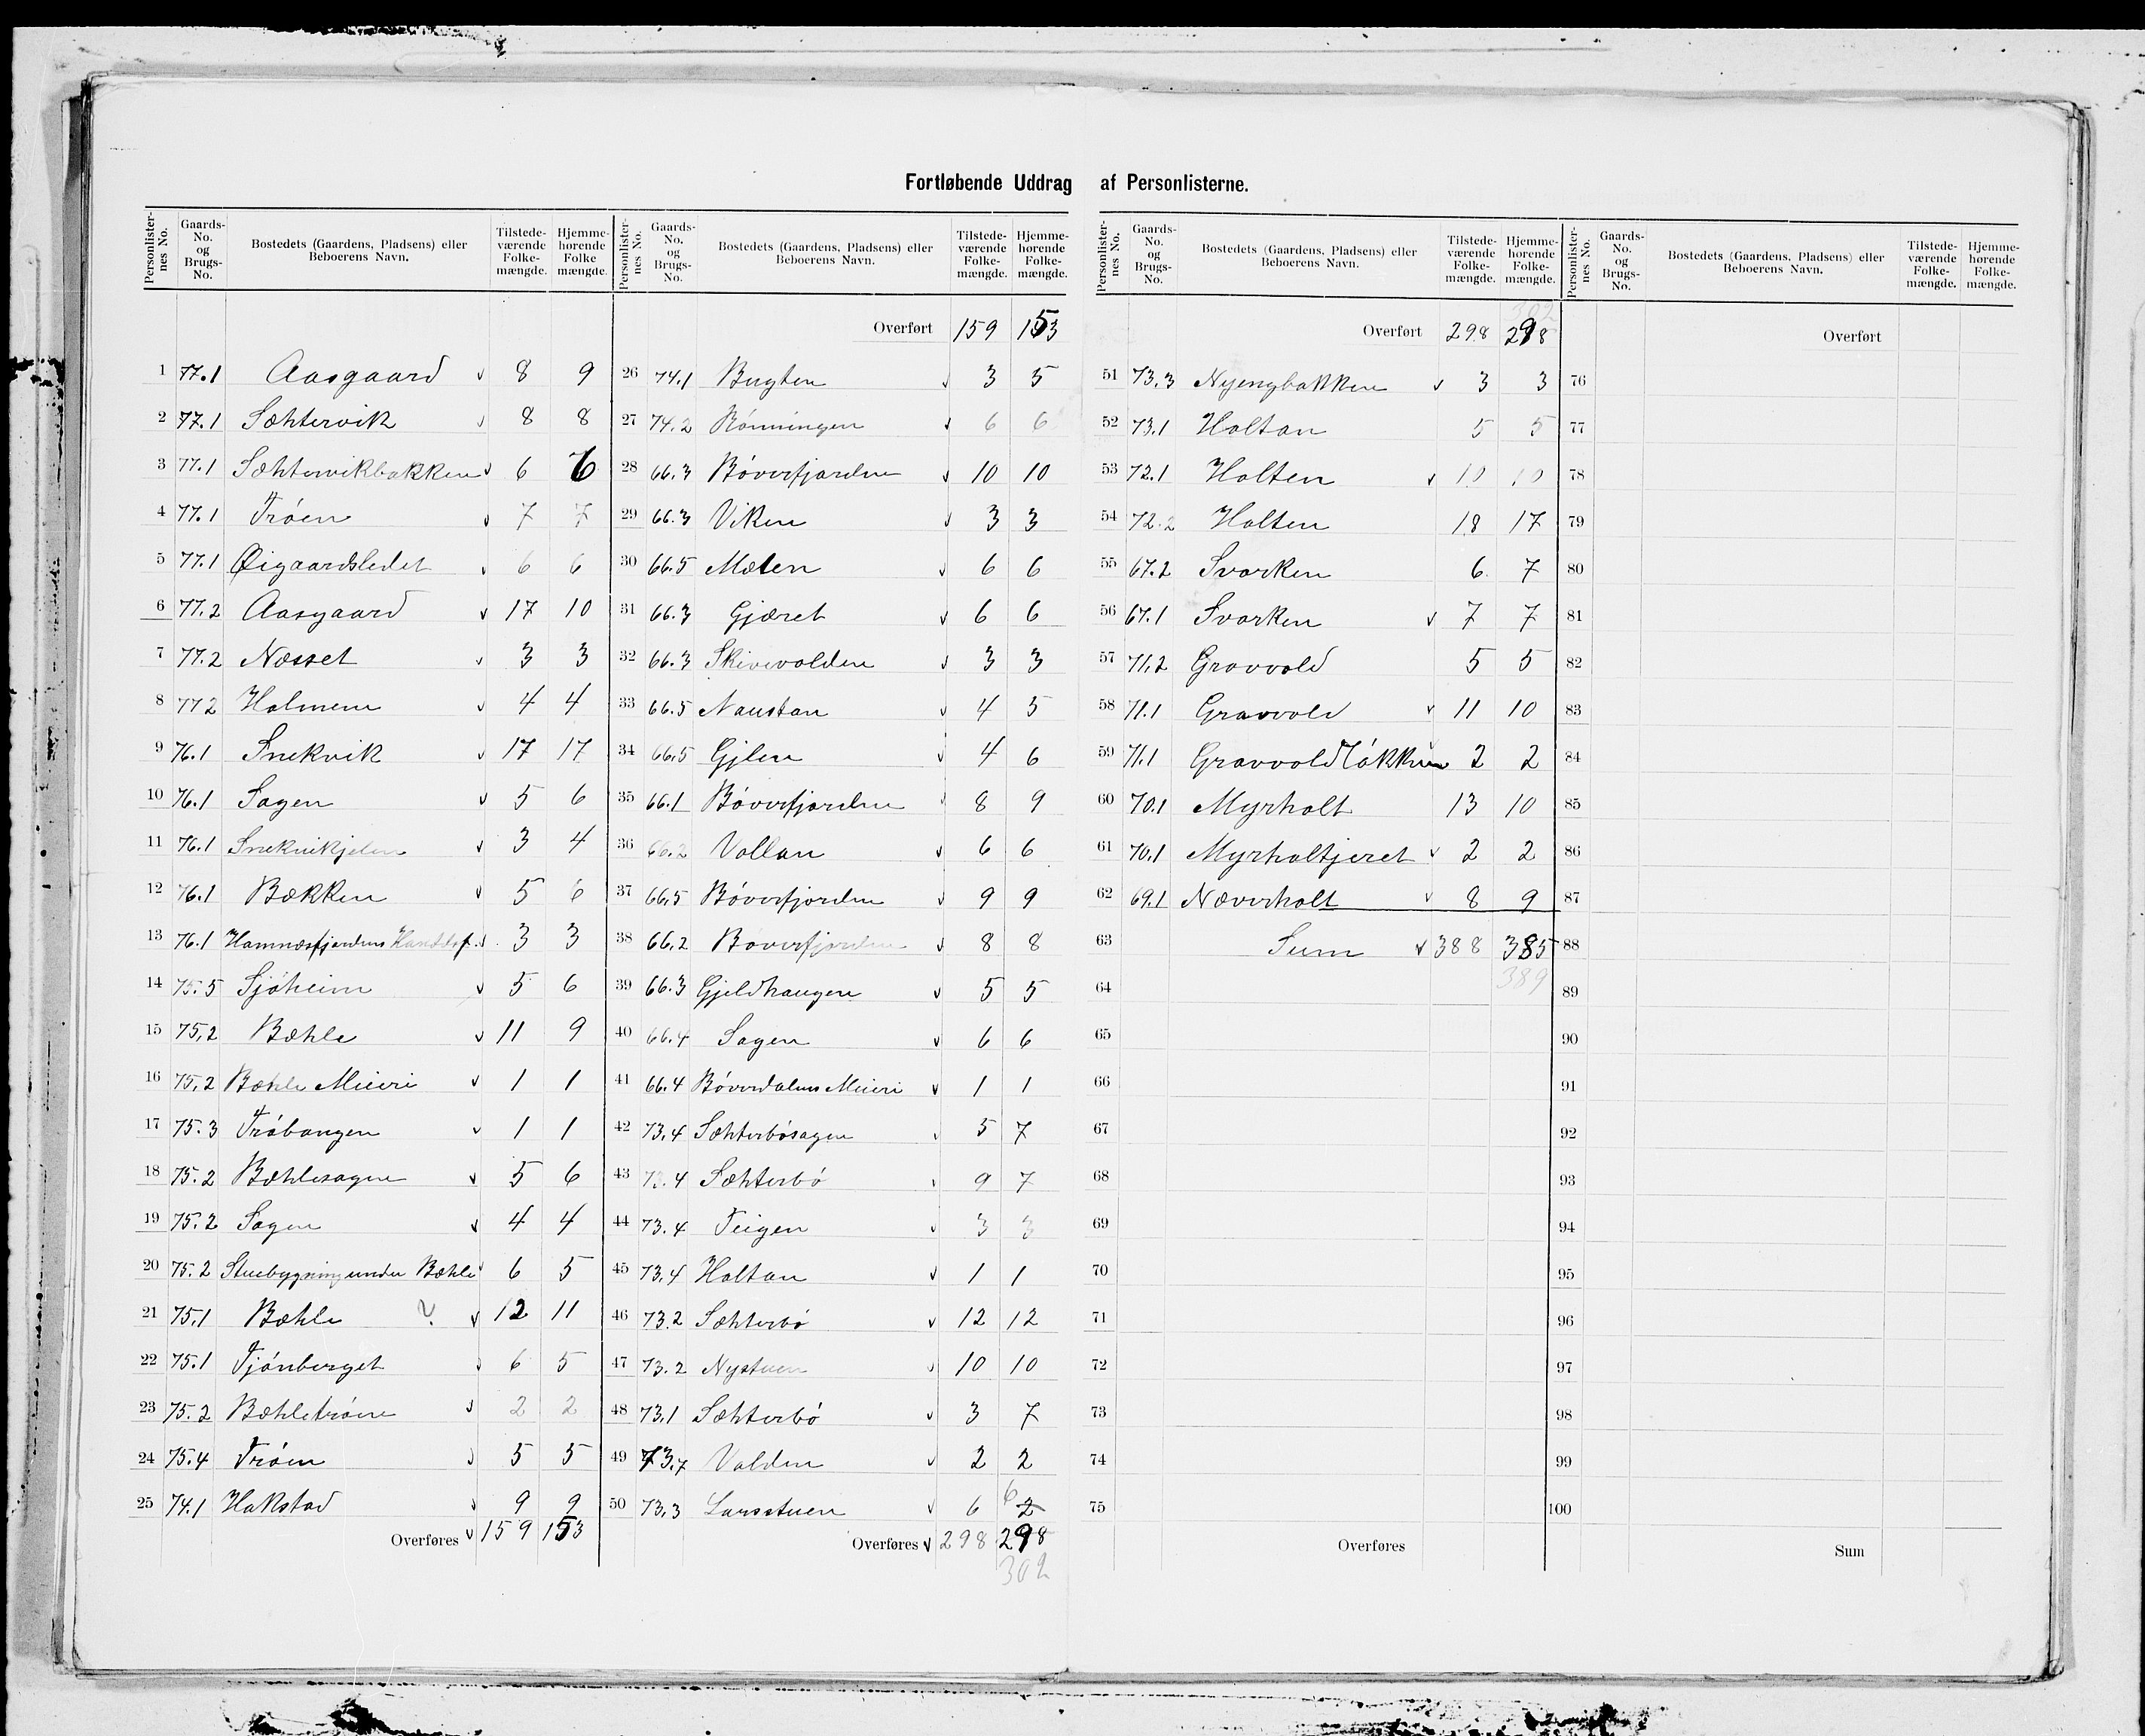 Fortløbende Uddrag af Personlisterne.
Personlister-nes No. Gaards-No. og Brugs-No. Bostedets (Gaardens, Pladsens) eller Beboerens Navn. Tilstede-værende Folke-mængde. Hjemme-hørende Folke mængde.
1 77.1 Aasgaard v 8 9
2 77.1 Sæhtervik v 8 8
3 77.1 Sæhtervikbakken v 6 6
4 77.1 Trøen v 7 7
5 77.1 Øigaardsledet v 6 6
6 77.2 Aasgaard v 17 10
7 77.2 Næsset v 3 3
8 77 2 Holmem v 4 4
9 76.1 Snekvik v 17 17
10 76.1 Sagen v 5 6
11 76.1 Snekvikjelen v 3 4
12 76.1 Bækken v 5 6
13 76.1 Hamnæsfjordens Handelsf. v 3 3
14 75.5 Sjøheim v 5 6
15 75,2 Bæhle v 11 9
16 75,2 Bæhle Mieeri v 1 1
17 75.3 Trøbangen v 1 1
18 75.2 Bæhlesagen v 5 6
19 75.2 Sagen v 4 4
20 75.2 Stuebygning under Bæhle v 6 5
21 75.1 Bæhle ? v 12 11
22 75.1 Tjønberget v 6 5
23 75.2 Bæhletrøen v 2 2
24 75.4 Trøen v 5 5
25 74.1 Hakstad v 9 9
Overføres v 159 153
Personlister-nes No. Gaards-No. og Brugs-No. Bostedets (Gaardens, Pladsens) eller Beboerens Navn. Tilstede-værende Folke-mængde. Hjemme-hørende Folke-mængde.
Overført 159 153
26 74.1 Bugten v 3 5
27 74.2 Rønningen v 6 6
28 66.3 Bøverfjorden v 10 10
29 66.3 Viken v 3 3
30 66.5 Mælen v 6 6
31 66.3 Gjæret v 6 6
32 66.3 Skivevolden v 3 3
33 66.5 Naustan v 4 5
34 66,5 Gjlen v 4 6
35 66.1 Bøverfjorden v 8 9
36 66.2 Vollan v 6 6
37 66,5 Bøverfjorden v 9 9
38 66,2 Bøverfjorden v 8 8
39 66.3 Gjeldhaugen v 5 5
40 66.4 Sagen v 6 6
41 66.4 Bøverdalens Mieri v 1 1
42 73,4 Sæhterbøsagen v 5 7
43 73.4 Sæhterbø v 9 7
44 73.4 Teigen v 3 3
45 73,4 Holtan v 1 1
46 73.2 Sæhterbø v 12 12
47 73.2 Nystuen v 10 10
48 73,1 Sæhterbø v 3 7
49 73,7 Volden v 2 2
50 73,3 Larsstuen v 6 6 2
Overføres v 298 298
302
Personlister-nes No. Gaards-No. og Brugs-No. Bostedets (Gaardens, Pladsens) eller Beboerens Navn. Tilstede-værende Folke-mængde. Hjemme-hørende Folke-mængde.
302
Overført 298 298
51 73,3 Nyengbakken v 3 3
52 73.1 Holtan 5 5
53 72.1 Holten v 10 10
54 72.2 Holten 18 17
55 67.2 Svorken 6 7
56 67.1 Svorken v 7 7
57 71,2 Gravvold 5 5
58 71.1 Gravvold v 11 10
59 71.1 Gravvoldløkken v 2 2
60 70.1 Myrholt 13 10
61 70.1 Myrholtjeret v 2 2
62 69.1 Næverholt v 8 9
63 Sum v 388 385
64 389
65
66
67
68
69
70
71
72
73
74
75
Overføres
Personlister-nes No. Gaards-No. og Brugs-No. Bostedets (Gaardens, Pladsens) eller Beboerens Navn. Tilstede-værende Folke-mængde. Hjemme-hørende Folke-mængde.
Overført
76
77
78
79
80
81
82
83
84
85
86
87
88
89
90
91
92
93
94
95
96
97
98
99
100
Sum